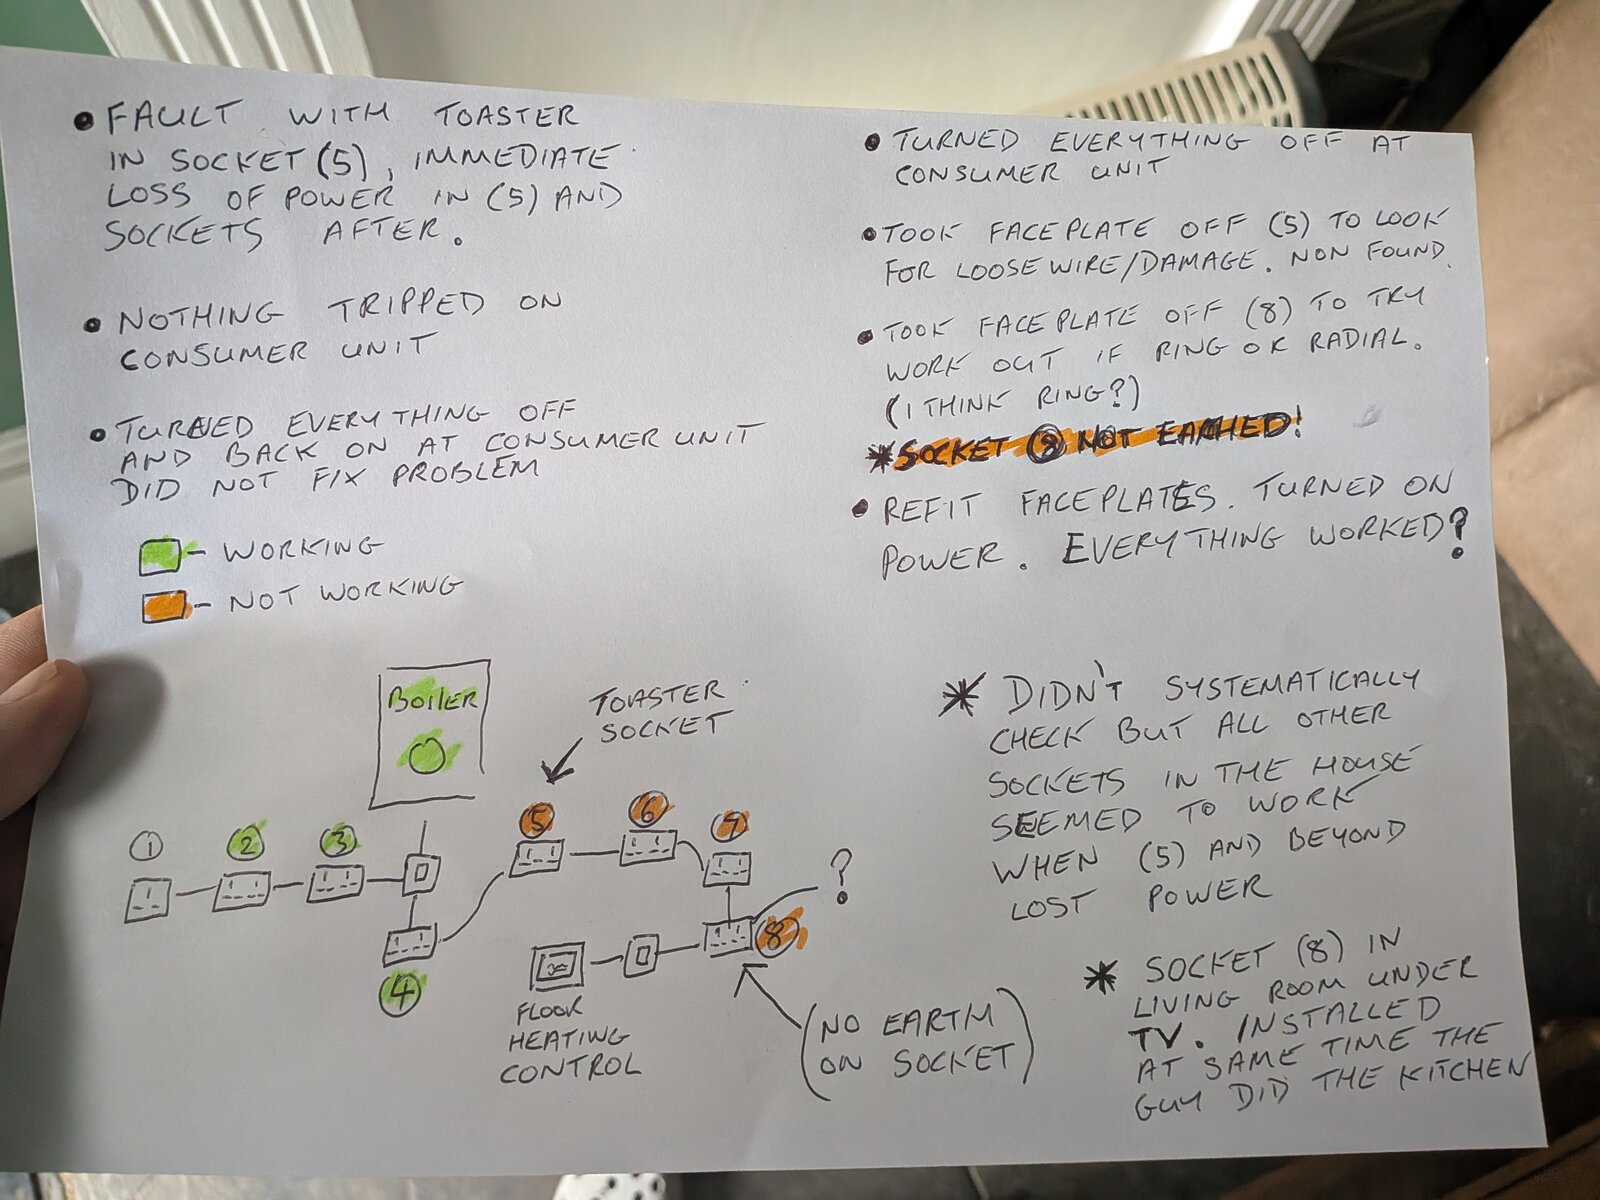 • FAULT WITH TOASTER
IN SOCKET (5), IMMEDIATE
LOSS OF POWER IN (5) AND
SOCKETS AFTER.
• NOTHING TRIPPED ON
CONSUMER UNIT
• TURNED EVERYTHING OFF
AND BACK ON AT CONSUMER UNIT
DID NOT FIX PROBLEM
- WORKING
- NOT WORKING
• TURNED EVERYTHING OFF AT
CONSUMER UNIT
• TOOK FACEPLATE OFF (5) TO LOOK
FOR LOOSE WIRE/DAMAGE. NON FOUND.
• TOOK FACEPLATE OFF (8) TO TRY
WORK OUT IF RING OR RADIAL.
(I THINK RING?)
* SOCKET (8) NOT EARTHED!
• REFIT FACEPLATES. TURNED ON
POWER. EVERYTHING WORKED?
BOILER
TOASTER
SOCKET
1
2
3
4
5
6
7
?
8
FLOOR
HEATING
CONTROL
(NO EARTH
ON SOCKET)
* DIDN'T SYSTEMATICALLY
CHECK BUT ALL OTHER
SOCKETS IN THE HOUSE
SEEMED TO WORK
WHEN (5) AND BEYOND
LOST POWER
* SOCKET (8) IN
LIVING ROOM UNDER
TV. INSTALLED
AT SAME TIME THE
GUY DID THE KITCHEN